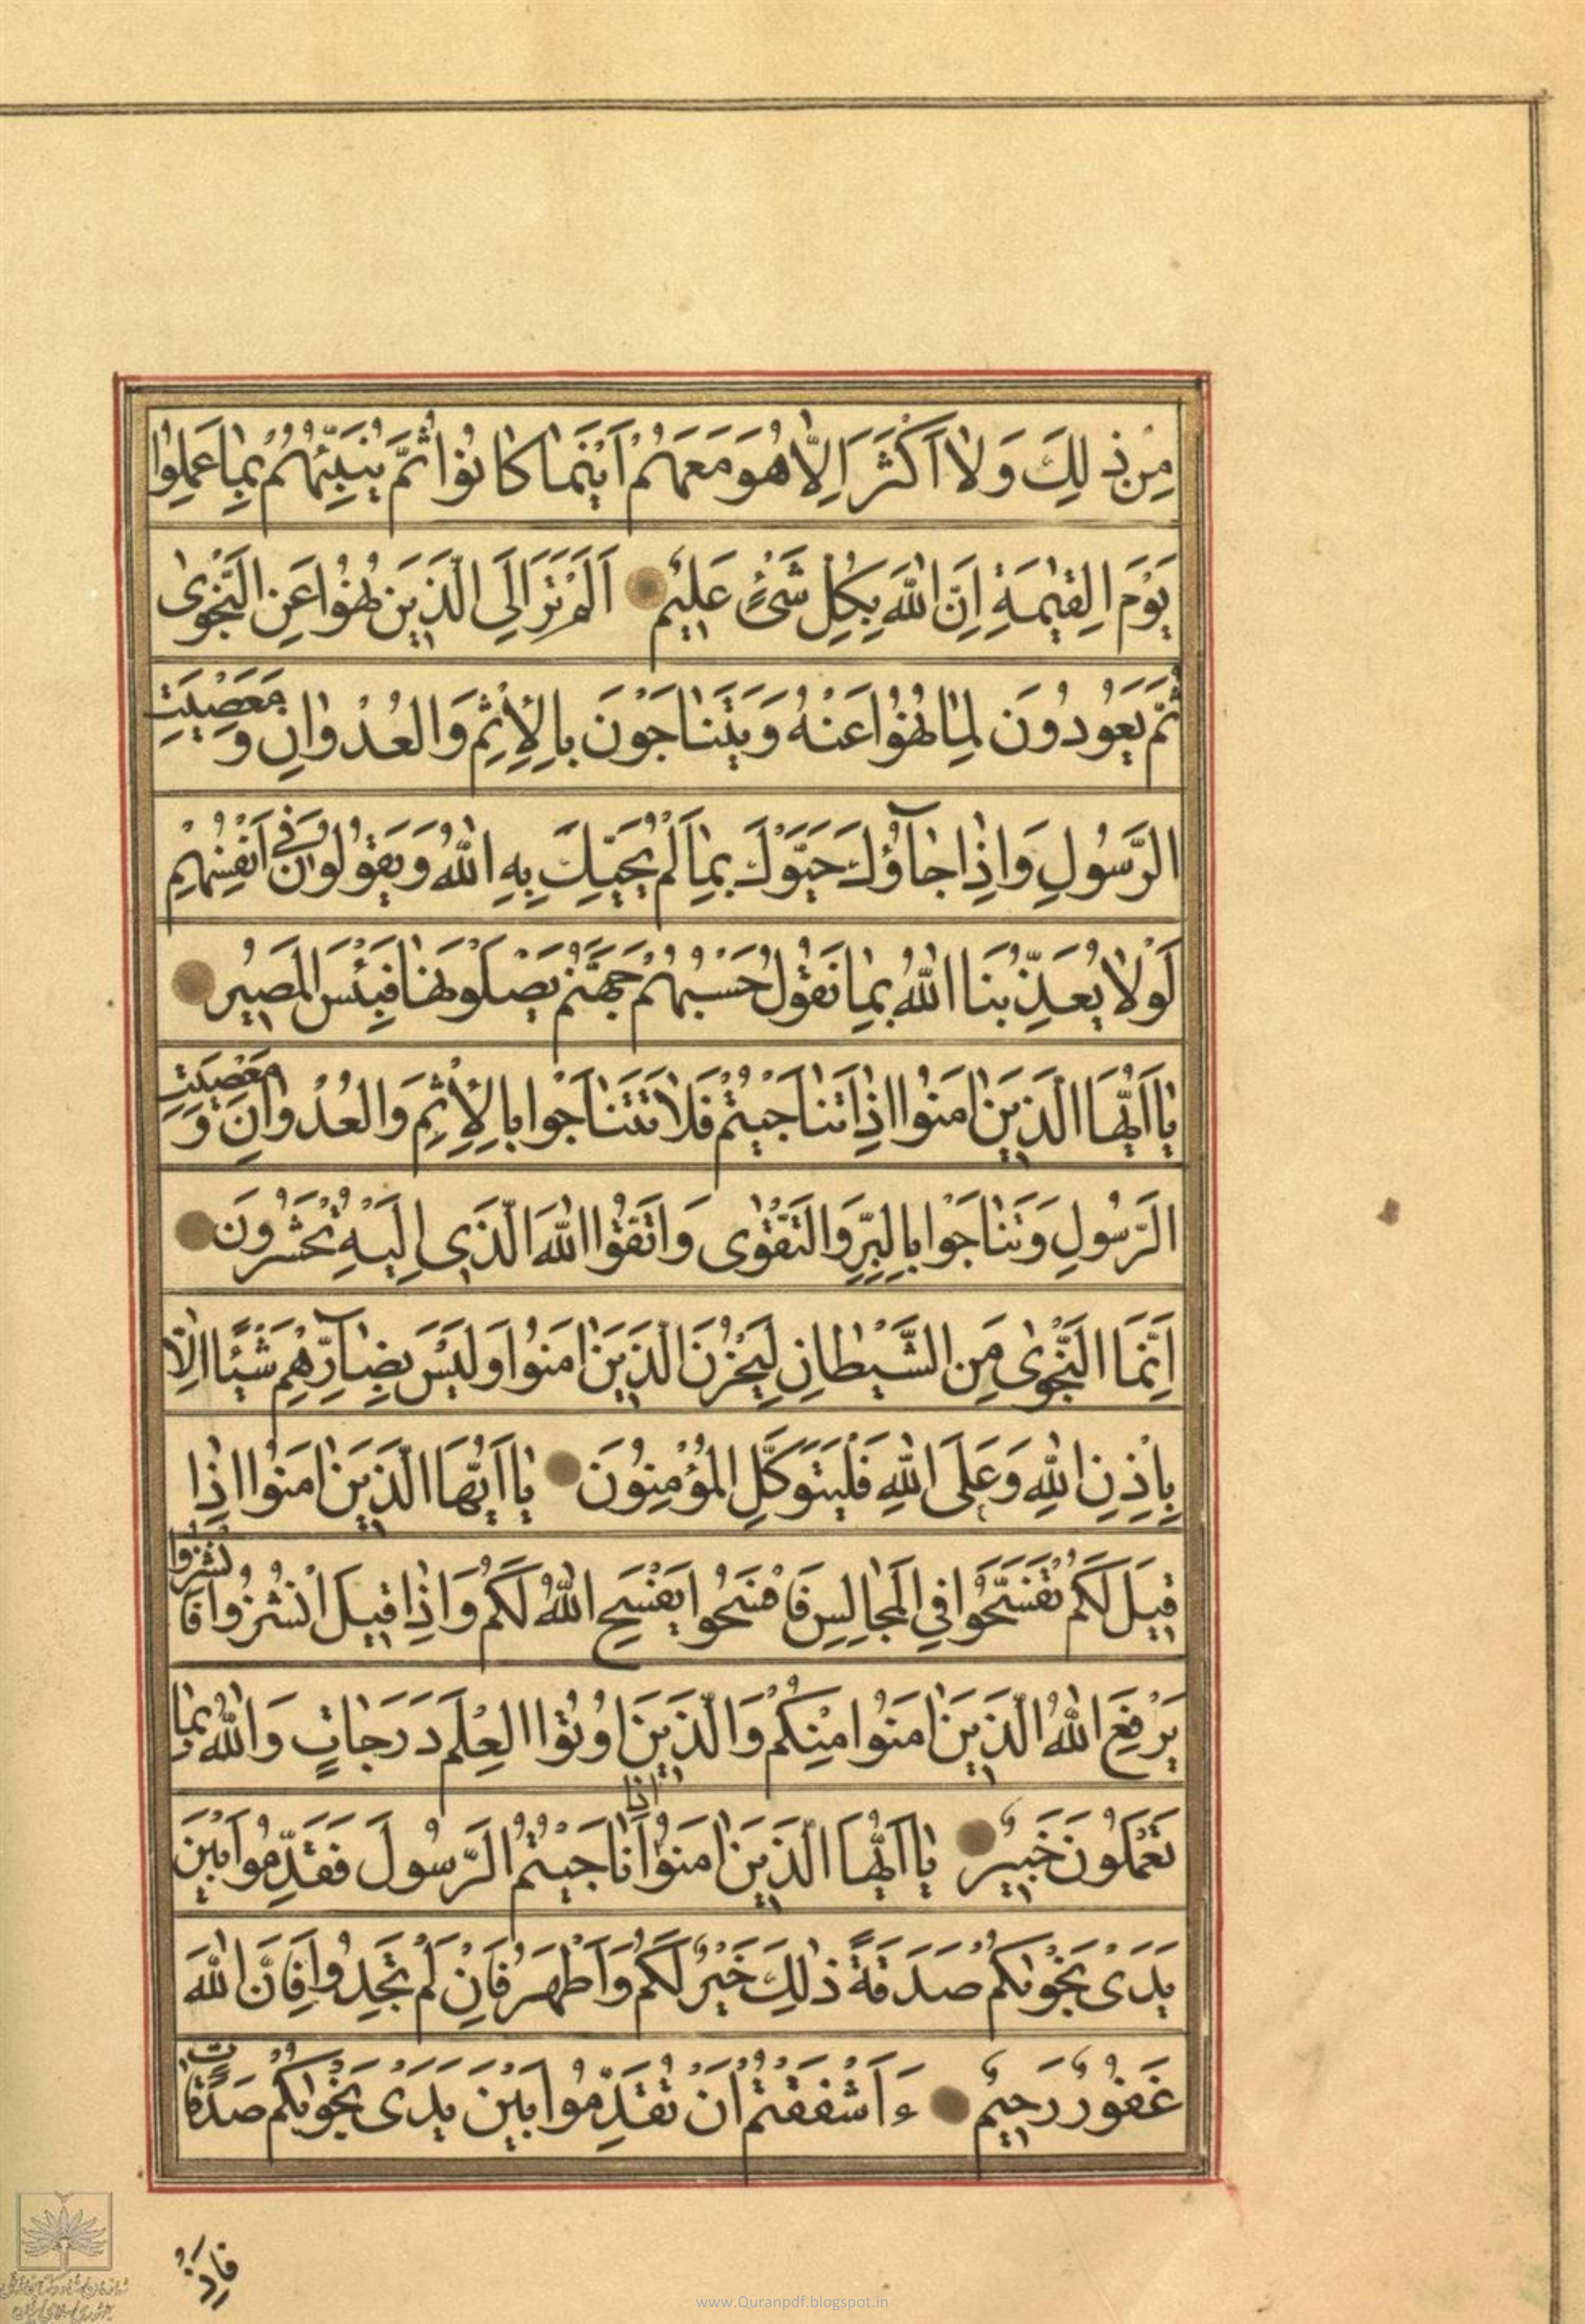 مِنْ ذٰلِكَ وَلٰا اَكْثَرَ اِلّٰا هُوَ مَعَهُمْ اَيْنَمٰا كٰانُوا ثُمَّ يُنَبِّئُهُمْ بِمٰا عَمِلُوا
يَوْمَ الْقِيٰمَةِ اِنَّ اللّٰهَ بِكُلِّ شَىْءٍ عَلِيمٌ اَلَمْ تَرَ اِلَى الَّذِينَ نُهُوا عَنِ النَّجْوٰى
ثُمَّ يَعُودُونَ لِمٰا نُهُوا عَنْهُ وَيَتَنٰاجَوْنَ بِالْاِثْمِ وَالْعُدْوٰانِ وَمَعْصِيَتِ
الرَّسُولِ وَاِذٰا جٰآؤُكَ حَيَّوْكَ بِمٰا لَمْ يُحَيِّكَ بِهِ اللّٰهُ وَيَقُولُونَ فِى اَنْفُسِهِمْ
لَوْلٰا يُعَذِّبُنَا اللّٰهُ بِمٰا نَقُولُ حَسْبُهُمْ جَهَنَّمُ يَصْلَوْنَهٰا فَبِئْسَ الْمَصِيرُ
يٰا اَيُّهَا الَّذِينَ اٰمَنُوا اِذٰا تَنٰاجَيْتُمْ فَلٰا تَتَنٰاجَوْا بِالْاِثْمِ وَالْعُدْوٰانِ وَمَعْصِيَتِ
الرَّسُولِ وَتَنٰاجَوْا بِالْبِرِّ وَالتَّقْوٰى وَاتَّقُوا اللّٰهَ الَّذِى اِلَيْهِ تُحْشَرُونَ
اِنَّمَا النَّجْوٰى مِنَ الشَّيْطٰانِ لِيَحْزُنَ الَّذِينَ اٰمَنُوا وَلَيْسَ بِضٰآرِّهِمْ شَيْئًا اِلّٰا
بِاِذْنِ اللّٰهِ وَعَلَى اللّٰهِ فَلْيَتَوَكَّلِ الْمُؤْمِنُونَ يٰا اَيُّهَا الَّذِينَ اٰمَنُوا اِذٰا
قِيلَ لَكُمْ تَفَسَّحُوا فِى الْمَجٰالِسِ فَافْسَحُوا يَفْسَحِ اللّٰهُ لَكُمْ وَاِذٰا قِيلَ انْشُزُوا فَانْشُزُوا
يَرْفَعِ اللّٰهُ الَّذِينَ اٰمَنُوا مِنْكُمْ وَالَّذِينَ اُوتُوا الْعِلْمَ دَرَجٰاتٍ وَاللّٰهُ بِمٰا
تَعْمَلُونَ خَبِيرٌ يٰا اَيُّهَا الَّذِينَ اٰمَنُوا اِذٰا نٰاجَيْتُمُ الرَّسُولَ فَقَدِّمُوا بَيْنَ
يَدَىْ نَجْوٰىكُمْ صَدَقَةً ذٰلِكَ خَيْرٌ لَكُمْ وَاَطْهَرُ فَاِنْ لَمْ تَجِدُوا فَاِنَّ اللّٰهَ
غَفُورٌ رَحِيمٌ ءَاَشْفَقْتُمْ اَنْ تُقَدِّمُوا بَيْنَ يَدَىْ نَجْوٰىكُمْ صَدَقٰاتٍ
فَاِذْ
www.Quranpdf.blogspot.in